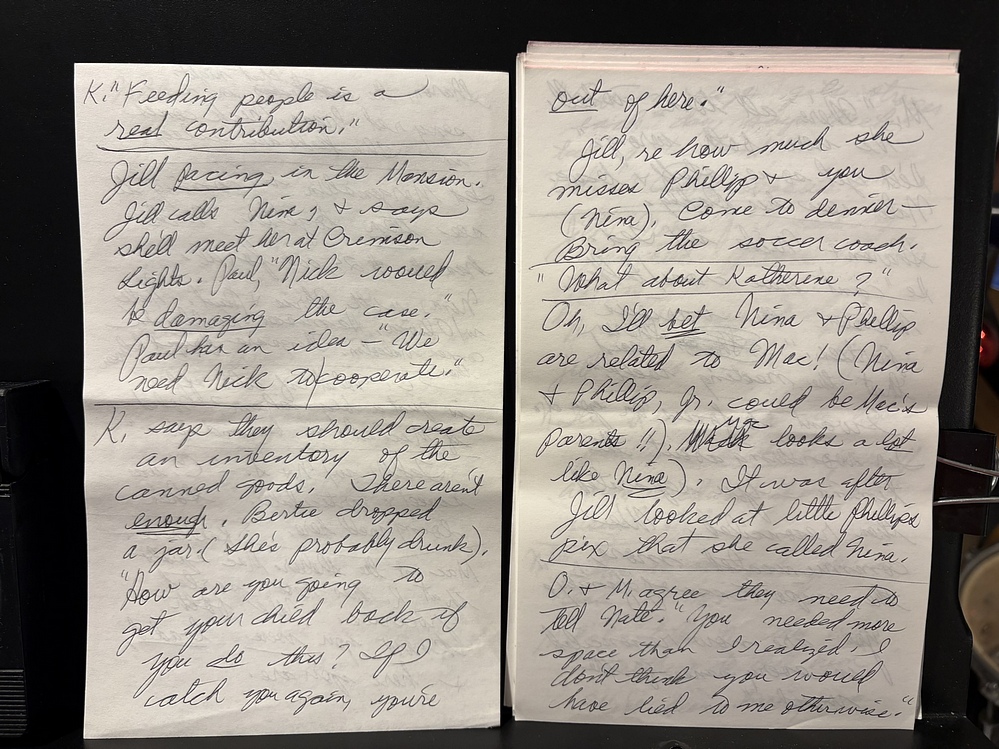 K. "Feeding people is a
real contribution."
Jill pacing in the Mansion.
Jill calls Nina, & says
she'll meet her at Crimson
Lights. Paul, "Nick would
be damaging the case."
Paul has an idea – "We
need Nick to cooperate."
K. says they should create
an inventory of the
canned goods. There aren't
enough. Bertie dropped
a jar. (She's probably drunk).
"How are you going to
get your child back if
you do this? If I
catch you again, you're
out of here."
Jill, re how much she
misses Phillip & you
(Nina). Come to dinner –
Bring the soccer coach.
"What about Katherine?"
Oh, I'll bet Nina & Phillip
are related to Mac! (Nina
& Phillip, Jr. could be Mac's
parents!!). Mac looks a lot
like Nina). It was after
Jill looked at little Phillips
pix that she called Nina.
O. & M. agree they need to
tell Nate. "You needed more
space than I realized. I
don't think you would
have lied to me otherwise."